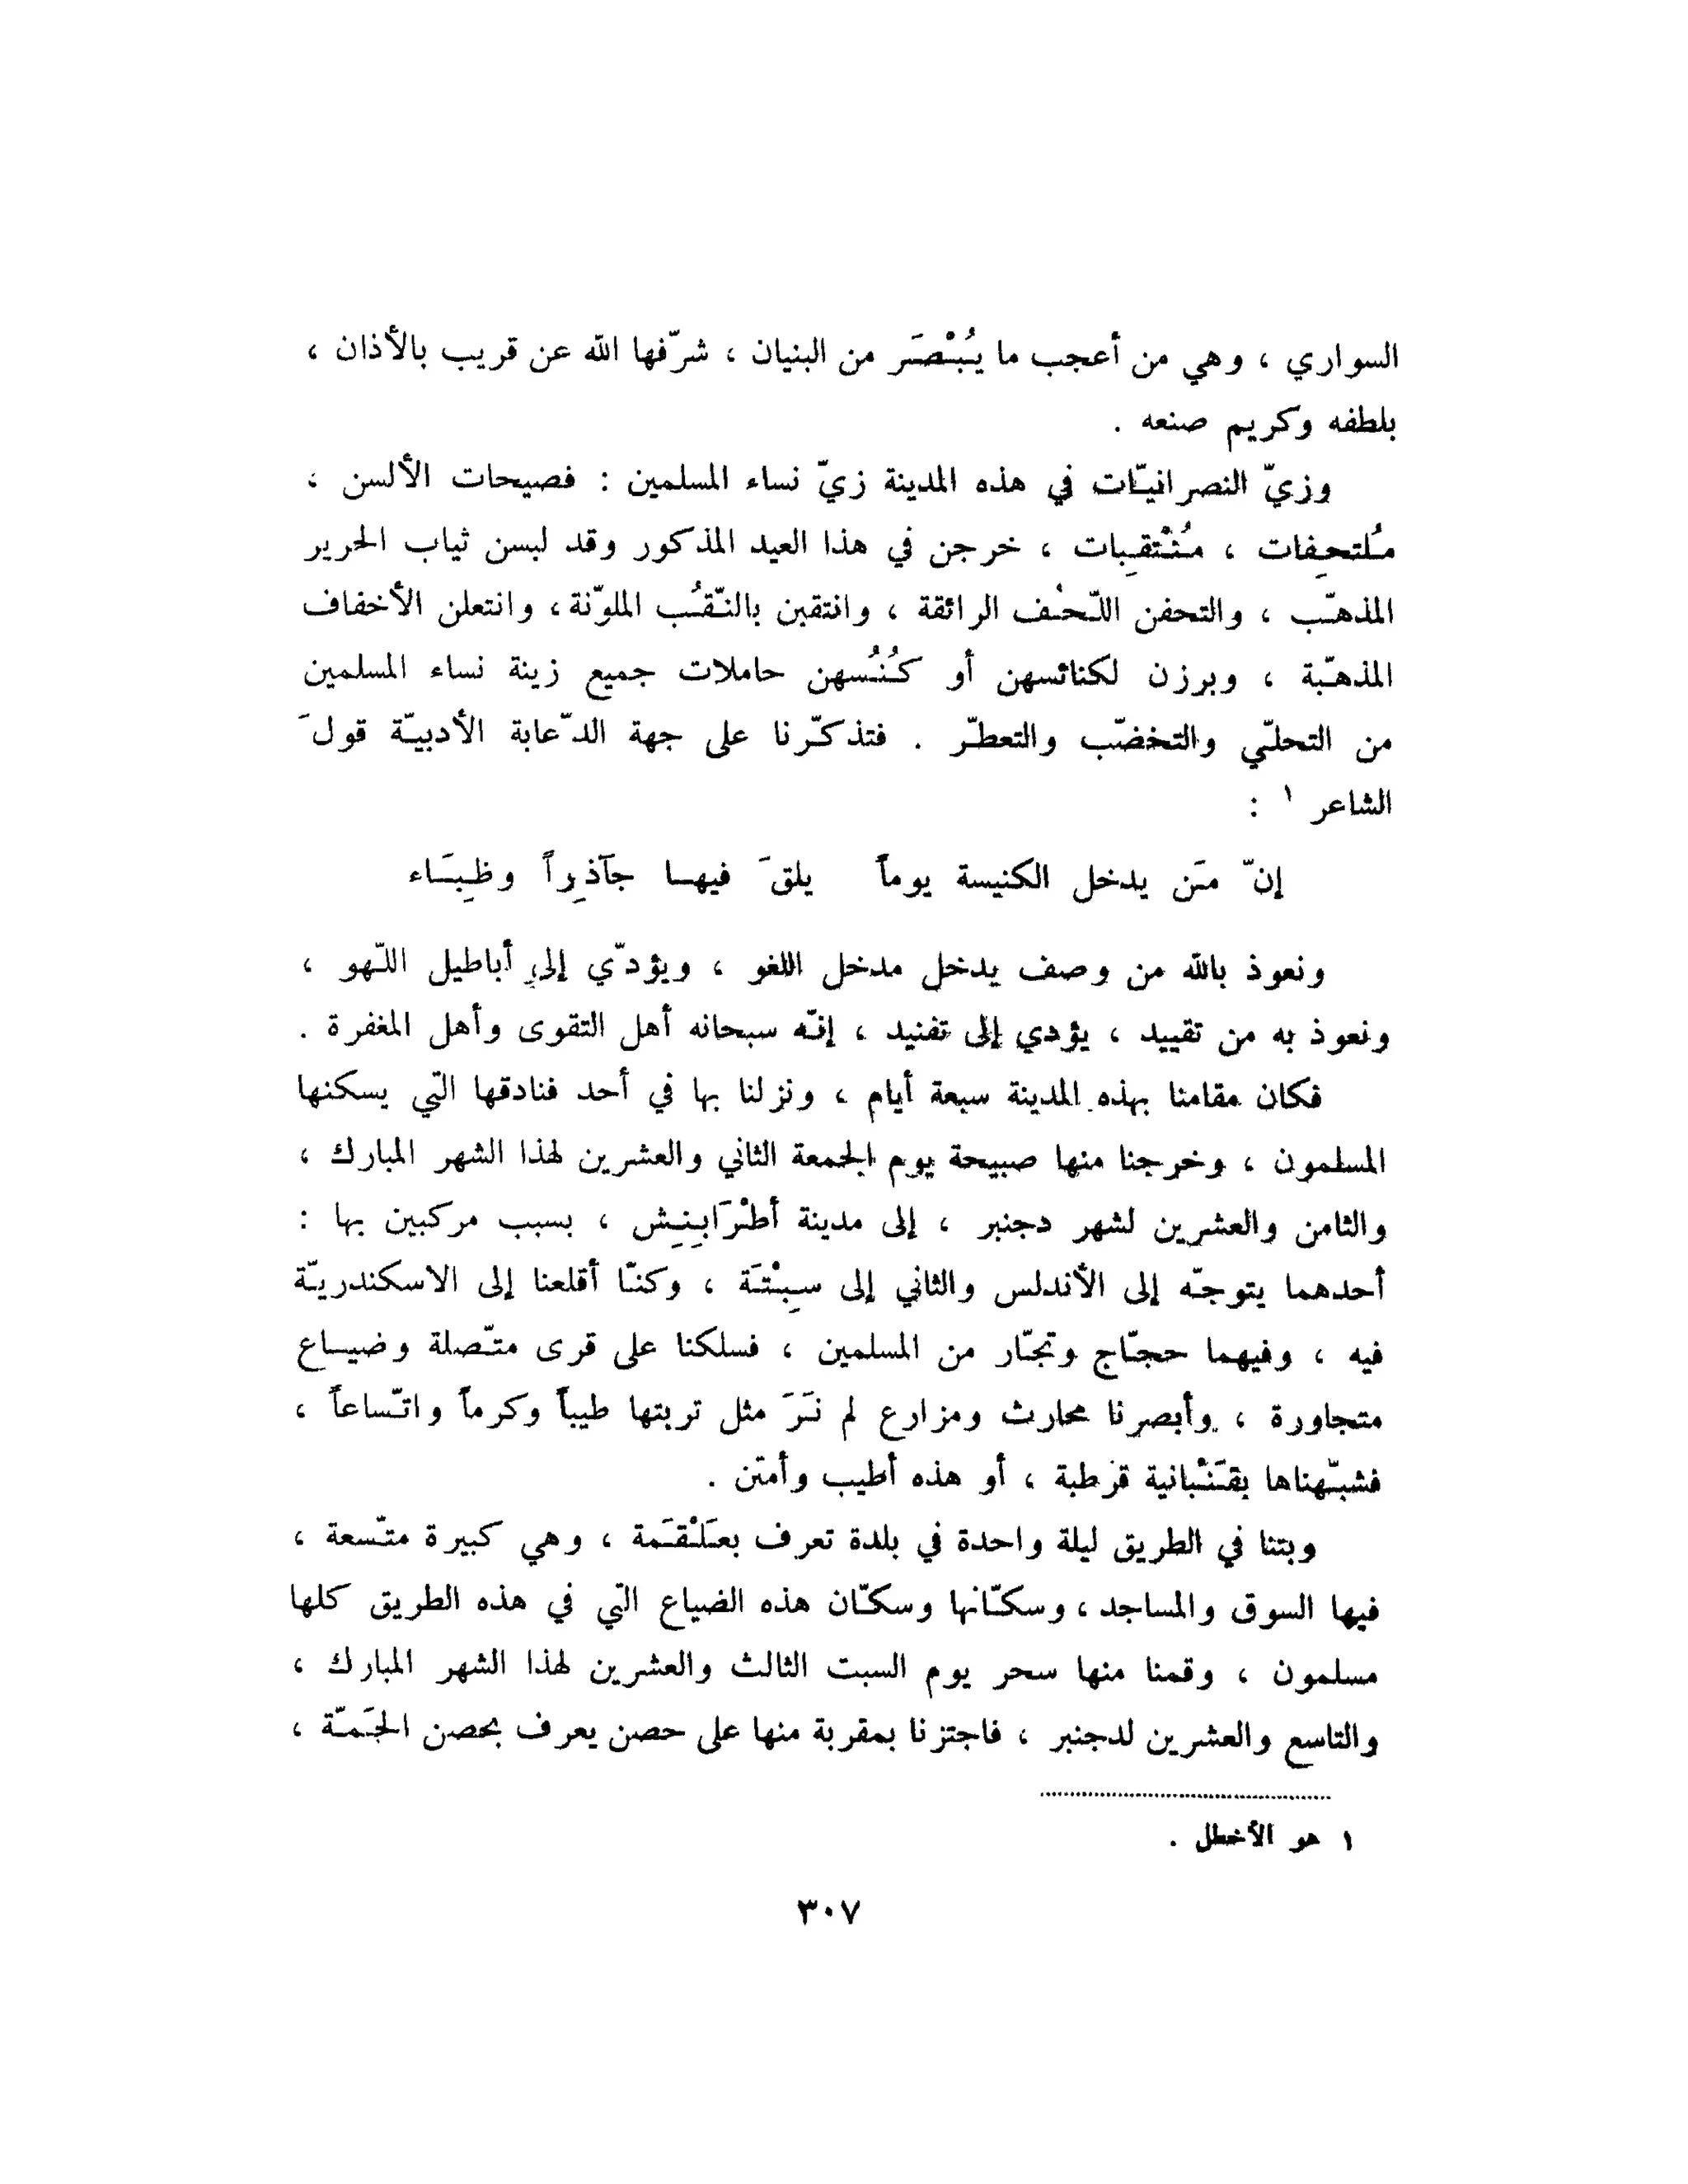 السواري ، وهي من أعجب ما يُبْصَر من البنيان ، شرّفها الله عن قريب بالأذان ،
بلطفه وكريم صنعه .
وزيّ النصرانيّات في هذه المدينة زيّ نساء المسلمين : فصيحات الألسن ،
مُلتحِفات ، مُنْتقِبات ، خرجن في هذا العيد المذكور وقد لبسن ثياب الحرير
المذهّب ، والتحفن اللّحْف الرائقة ، وانتقبن بالنّقُب الملوّنة ، وانتعلن الأخفاف
المذهّبة ، وبرزن لكنائسهن أو كُنُسهن حاملات جميع زينة نساء المسلمين
من التحلّي والتخضّب والتعطّر . فتذكّرنا على جهة الدّعابة الأدبيّة قولَ
الشاعر ١ :
إنّ مَن يدخل الكنيسة يوماً يلقَ فيها جآذِراً وظِبَاء
ونعوذ بالله من وصف يدخل مدخل اللغو ، ويؤدّي إلى أباطيل اللّهو ،
ونعوذ به من تقييد ، يؤدي إلى تفنيد ، إنّه سبحانه أهل التقوى وأهل المغفرة .
فكان مقامنا بهذه المدينة سبعة أيام ، ونزلنا بها في أحد فنادقها التي يسكنها
المسلمون ، وخرجنا منها صبيحة يوم الجمعة الثاني والعشرين لهذا الشهر المبارك ،
والثامن والعشرين لشهر دجنبر ، إلى مدينة أطْرَابِنِش ، بسبب مركبين بها :
أحدهما يتوجّه إلى الأندلس والثاني إلى سِبْتَة ، وكنّا أقلعنا إلى الاسكندريّة
فيه ، وفيهما حجّاج وتجّار من المسلمين ، فسلكنا على قرى متّصلة وضياع
متجاورة ، وأبصرنا محارث ومزارع لم نَرَ مثل تربتها طيباً وكرماً واتّساعاً ،
فشبّهناها بقَنْبانية قرطبة ، أو هذه أطيب وأمتن .
وبتنا في الطريق ليلة واحدة في بلدة تعرف بعَلْقَمة ، وهي كبيرة متّسعة ،
فيها السوق والمساجد ، وسكّانها وسكّان هذه الضياع التي في هذه الطريق كلها
مسلمون ، وقمنا منها سحر يوم السبت الثالث والعشرين لهذا الشهر المبارك ،
والتاسع والعشرين لدجنبر ، فاجتزنا بمقربة منها على حصن يعرف بحصن الحَمّة ،
١ هو الأخطل .
٣٠٧